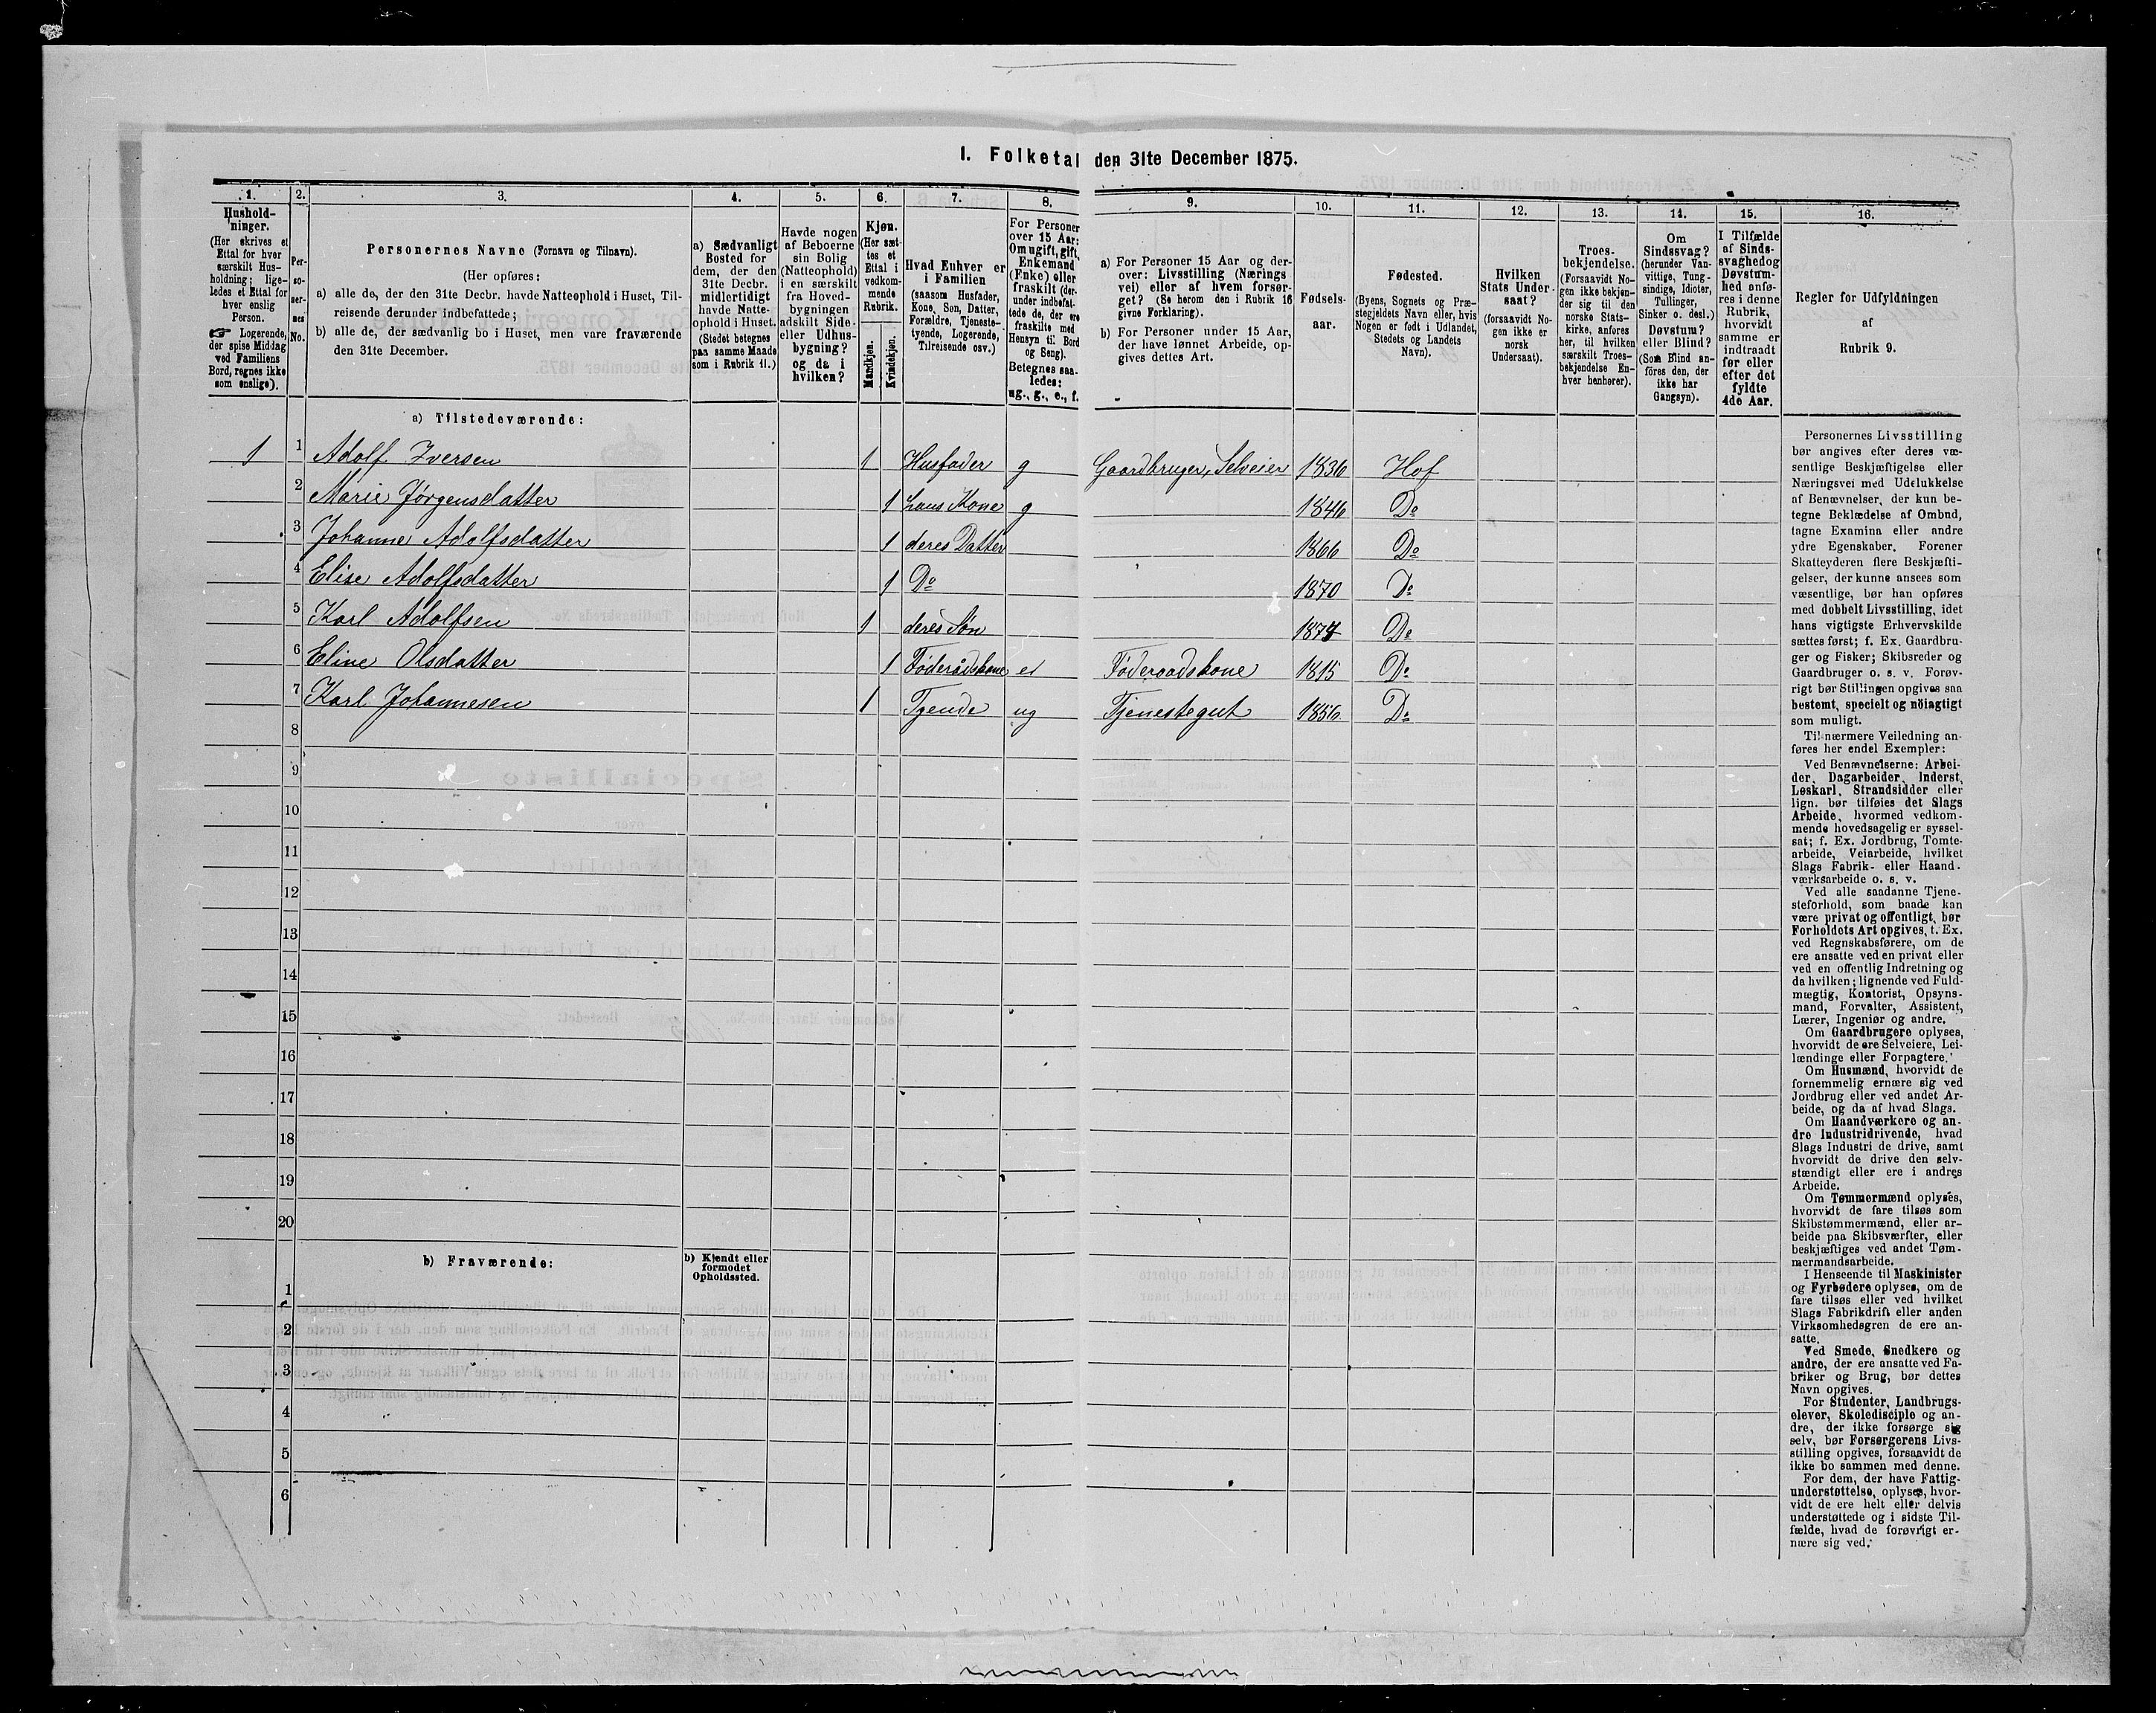 I. Folketal den 31te December 1875.
1. 2. 3. 4. 5. 6. 7. 8. 9. 10. 11. 12. 13. 14. 15. 16.
Hushold-
ninger.
(Her skrives et
Ettal for hver
særskilt Hus-
holdning; lige-
ledes et Ettal for
hver enslig
Person.
☞ Logerende,
der spise Middag
ved Familiens
Bord, regnes ikke
som enslige).
Per-
so-
ner-
nes
No.
Personernes Navne (Fornavn og Tilnavn).
(Her opføres:
a) alle de, der den 31te Decbr. havde Natteophold i Huset, Til-
reisende derunder indbefattede;
b) alle de, der sædvanlig bo i Huset, men vare fraværende
den 31te December.
a) Sædvanligt
Bosted for
dem, der den
31te Decbr.
midlertidigt
havde Natte-
ophold i Huset.
(Stedet betegnes
paa samme Maade
som i Rubrik 11.)
Havde nogen
af Beboerne
sin Bolig
(Natteophold)
i en særskilt
fra Hoved-
bygningen
adskilt Side-
eller Udhus-
bygning?
og da i
hvilken?
Kjøn.
(Her sæt-
tes et
Ettal i
vedkom-
mende
Rubrik.
Mandkjøn.
Kvindekjøn.
Hvad Enhver er
i Familien
(saasom Husfader,
Kone, Søn, Datter,
Forældre, Tjeneste-
tyende, Logerende,
Tilreisende osv.)
For Personer
over 15 Aar:
Om ugift, gift,
Enkemand
(Enke) eller
fraskilt (der-
under indbefat-
tede de, der ere
fraskilte med
Hensyn til Bord
og Seng).
Betegnes saa-
ledes:
ug., g., e., f.
a) For Personer 15 Aar og der-
over: Livsstilling (Nærings
vei) eller af hvem forsør-
get? (Se herom den i Rubrik 16
givne Forklaring).
b) For Personer under 15 Aar,
der have lønnet Arbeide, op-
gives dettes Art.
Fødsels-
aar.
Fødested.
(Byens, Sognets og Præ-
stegjeldets Navn eller, hvis
Nogen er født i Udlandet,
Stedets og Landets
Navn).
Hvilken
Stats Under-
saat?
(forsaavidt No-
gen ikke er
norsk
Undersaat).
Troes-
bekjendelse.
(Forsaavidt No-
gen ikke bekjen-
der sig til den
norske Stats-
kirke, anføres
her, til hvilken
særskilt Troes-
bekjendelse En-
hver henhører).
Om
Sindssvag?
(herunder Van-
vittige, Tung-
sindige, Idioter,
Tullinger,
Sinker o. desl.)
Døvstum?
eller Blind?
(Som Blind an-
føres den, der
ikke har
Gangsyn).
I Tilfælde
af Sinds-
svaghed og
Døvstum-
hed anfø-
res i denne
Rubrik,
hvorvidt
samme er
indtraadt
før eller
efter det
fyldte
4de Aar.
Regler for Udfyldningen
af
Rubrik 9.
a) Tilstedeværende:
1 1 Adolf Iversen 1 Husfader g Gaardbruger, Selveier 1836 Hof
2 Marie Jørgensdatter 1 hans Kone g 1846 Do
3 Johanne Adolfsdatter 1 deres Datter 1866 Do
4 Elise Adolfsdatter 1 Do 1870 Do
5 Karl Adolfsen 1 deres Søn Do
6 Eline Olsdatter 1 Føderådskone Føderaadskone 1815 Do
7 Karl Johannesen 1 Tyende ug Tjenestegut 1856 Do
8
9
10
11
12
13
14
15
16
17
18
19
20
b) Fraværende:
b) Kjendt eller
formodet
Opholdssted.
1
2
3
4
5
6
Personernes Livsstilling
bør angives efter deres væ-
sentlige Beskjæftigelse eller
Næringsvei med Udelukkelse
af Benævnelser, der kun be-
tegne Beklædelse af Ombud,
tagne Examina eller andre
ydre Egenskaber. Forener
Skatteyderen flere Beskjæfti-
gelser, der kunne ansees som
væsentlige, bør han opføres
med dobbelt Livsstilling, idet
hans vigtigste Erhvervskilde
sættes først; f. Ex. Gaardbru-
ger og Fisker; Skibsreder og
Gaardbruger o. s. v. Forøv-
rigt bør Stillingen opgives saa
bestemt, specielt og nøiagtigt
som muligt.
Til nærmere Veiledning an-
føres her endel Exempler:
Ved Benævnelserne: Arbei-
der, Dagarbeider, Inderst,
Løskarl, Strandsidder eller
lign. bør tilføies det Slags
Arbeide, hvormed vedkom-
mende hovedsagelig er syssel-
sat; f. Ex. Jordbrug, Tomte-
arbeide, Veiarbeide, hvilket
Slags Fabrik- eller Haand-
værksarbeide o. s. v.
Ved alle saadanne Tjene-
steforhold, som baade kan
være privat og offentligt, bør
Forholdets Art opgives, t. Ex.
ved Regnskabsførere, om de
ere ansatte ved en privat eller
ved en offentlig Indretning og
da hvilken; lignende ved Fuld-
mægtig, Kontorist, Opsyns-
mand, Forvalter, Assistent,
Lærer, Ingeniør og andre.
Om Gaardbrugere oplyses,
hvorvidt de ere Selveiere, Lei-
lændinge eller Forpagtere.
Om Husmænd, hvorvidt de
fornemmelig ernære sig ved
Jordbrug eller ved andet Ar-
beide, og da af hvad Slags.
Om Haandværkere og an-
dre Industridrivende, hvad
Slags Industri de drive, samt
hvorvidt de drive den selv-
stændigt eller ere i andres
Arbeide.
Om Tømmermænd oplyses,
hvorvidt de fare tilsøs som
Skibstømmermænd, eller ar-
beide paa Skibsværfter, eller
beskjæftiges ved andet Tøm-
mermandsarbeide.
I Henseende til Maskinister
og Fyrbødere oplyses, om de
fare tilsøs eller ved hvilket
Slags Fabrikdrift eller anden
Virksomhedsgren de ere an-
satte.
Ved Smede, Snedkere og
andre, der ere ansatte ved Fa-
briker og Brug, bør dettes
Navn opgives.
For Studenter, Landbrugs-
elever, Skoledisciple og an-
dre, der ikke forsørge sig
selv, bør Forsørgerens Livs-
stilling opgives, forsaavidt de
ikke bo sammen med denne.
For dem, der have Fattig-
understøttelse, oplyses, hvor-
vidt de ere helt eller delvis
understøttede og i sidste Til-
fælde, hvad de forøvrigt er-
nære sig ved.